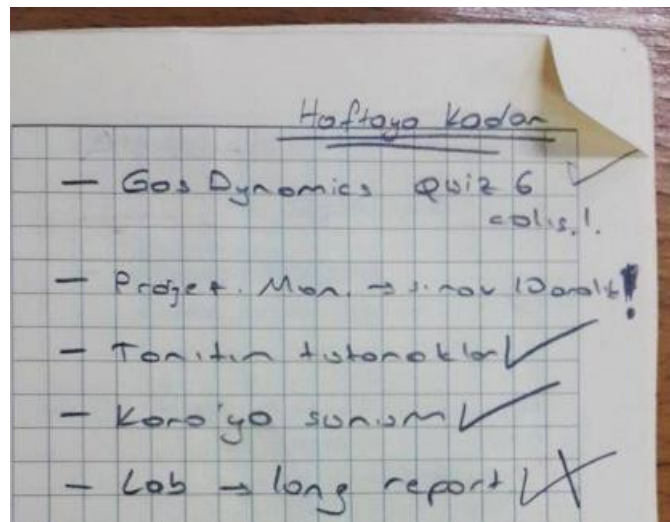 Haftaya Kadar
- Gas Dynamics Quiz 6
çalış!
- Project. Man. → sınav 10 aralık!
- Tanıtım tutanaklar
- Kara'ya sunum
- Lab → long report